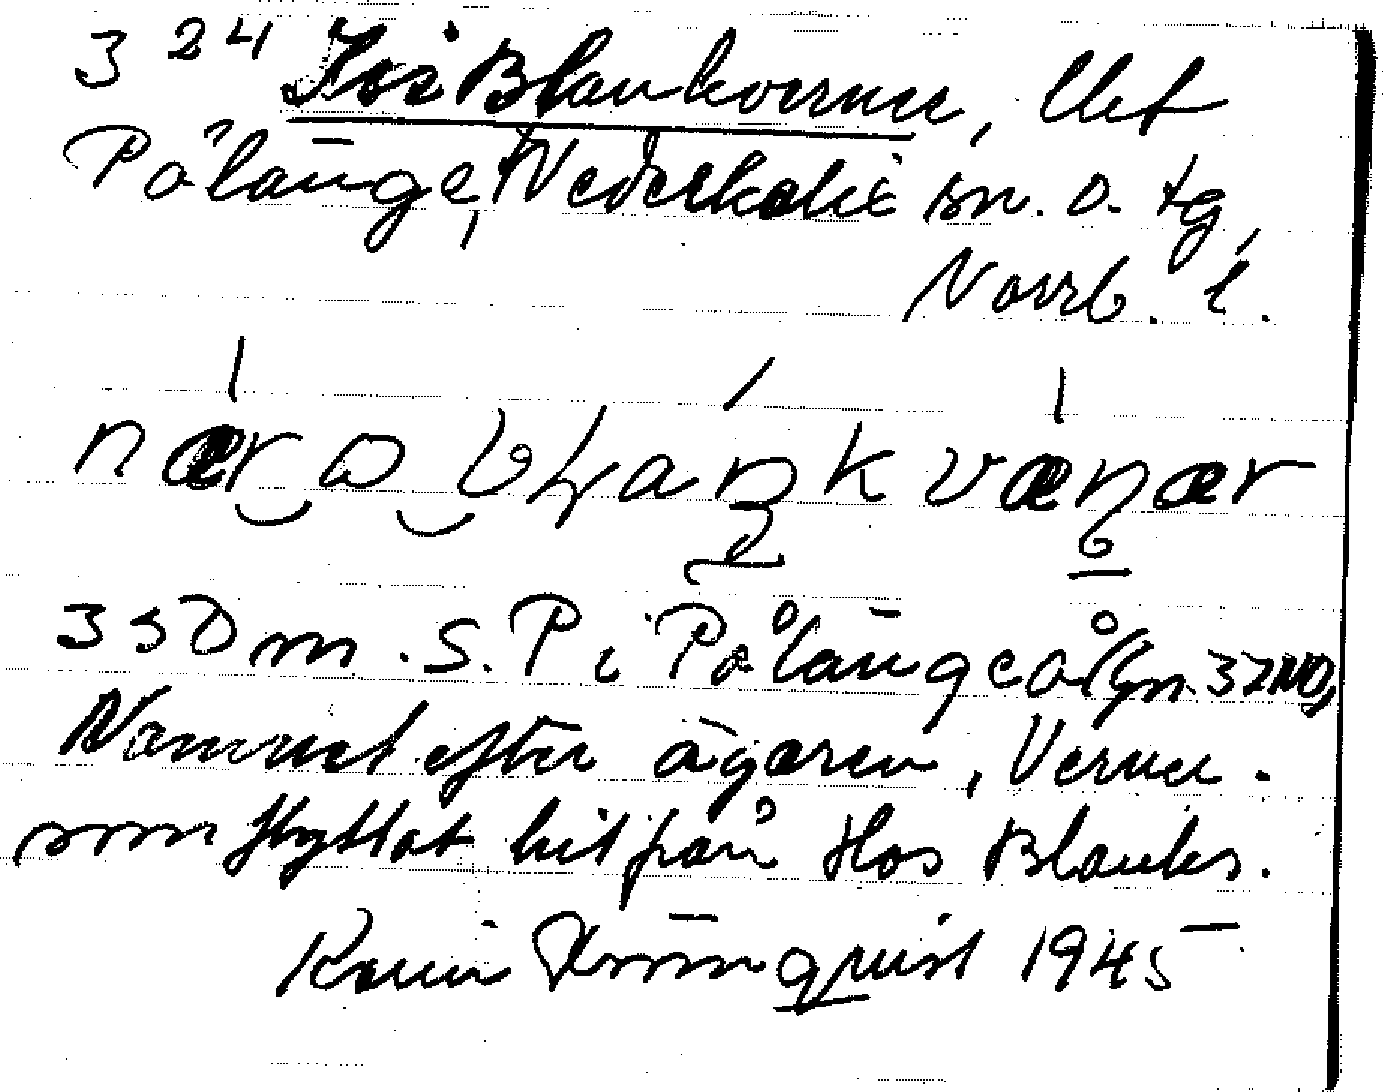 324 Hos Blankverner, lht
Pålänge, Nederkalix sn. o. tg,
Norrb. l.
næro blaŋkvæṇær
350 m. S. P i Pålänge å Gn 37 NO,
Namnet efter ägaren, Verner.
som flyttat hit från Hos Blanks.
Karin 1945